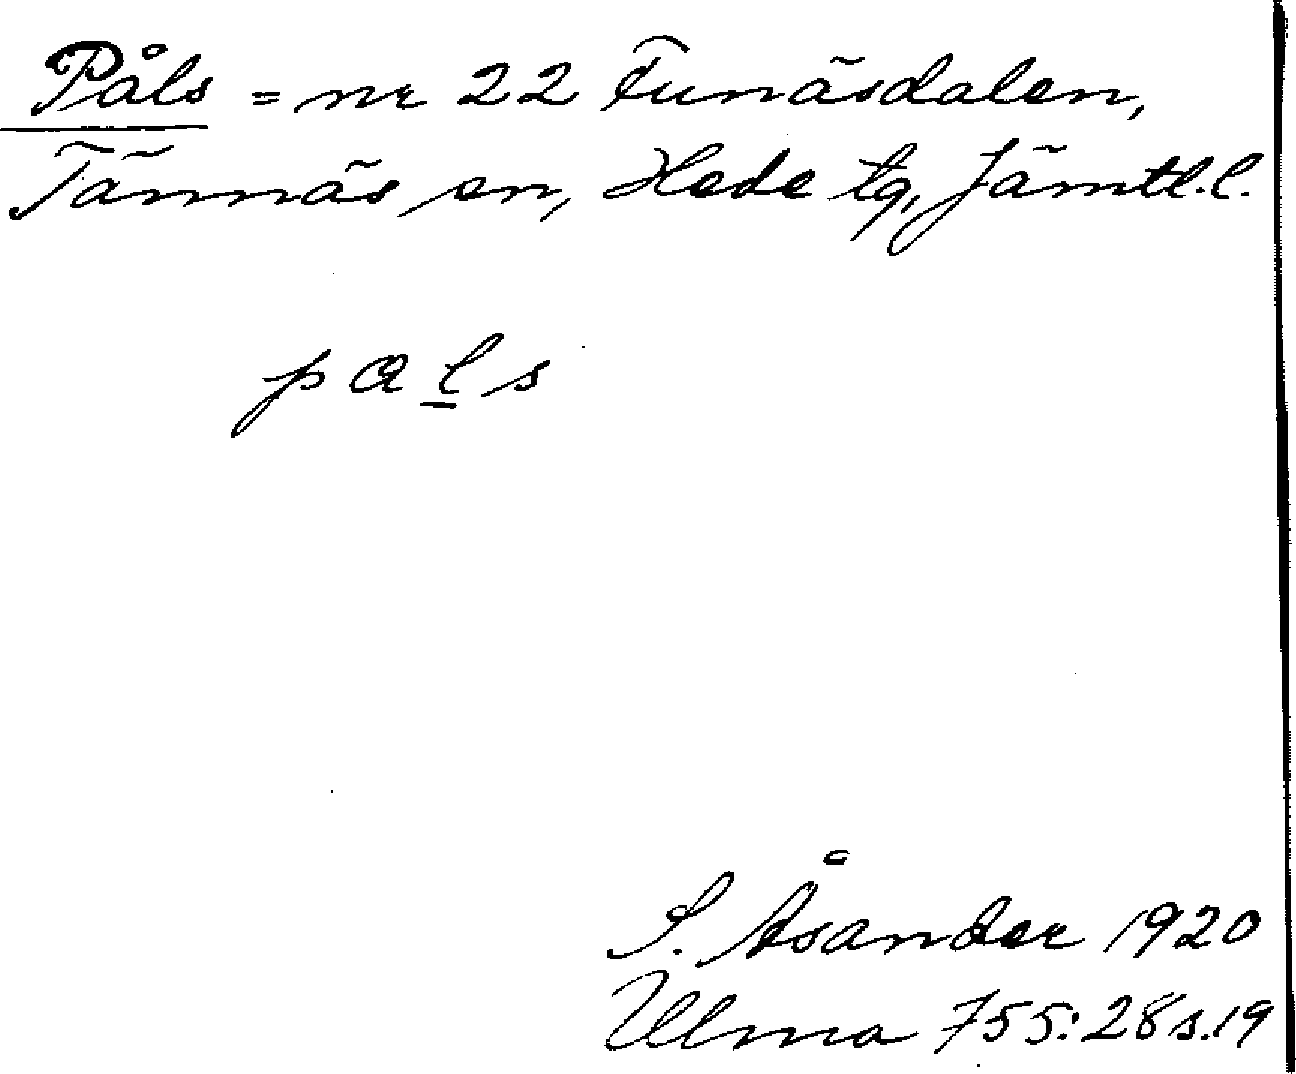 Påls = nr 22 Funäsdalen,
Tännäs sn, Hede tg, Jämtl.l.
pals
S. Åsander 1920
Ulma 755:28 s.19